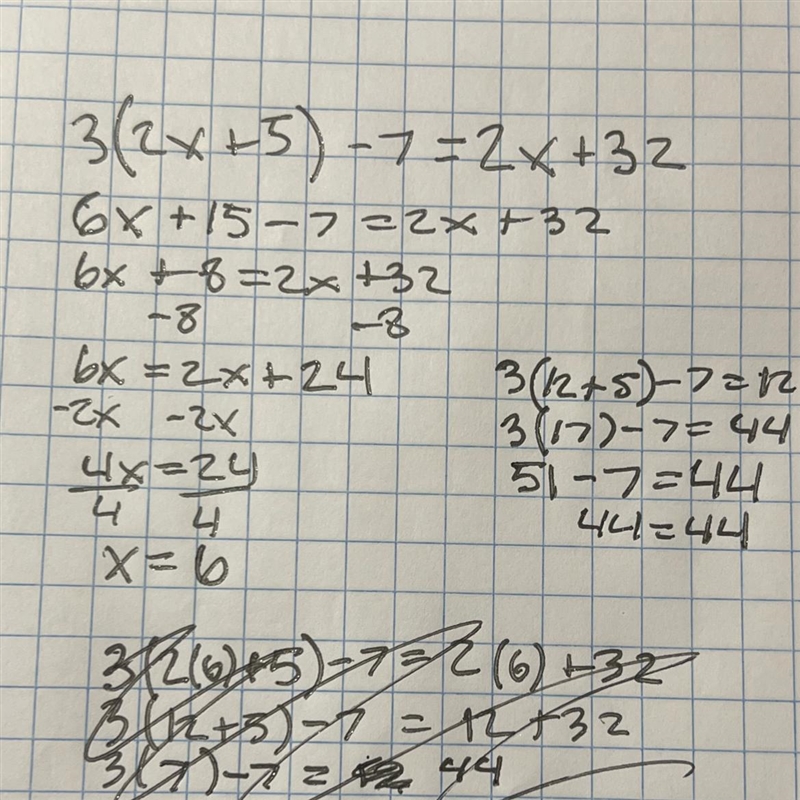 3(2x+5)-7=2x+32
6x+15-7=2x+32
6x+8=2x+32
-8 -8
6x=2x+24
-2x -2x
4x=24
4 4
x=6
3(12+5)-7=12
3(17)-7=44
51-7=44
44=44
3(2(6)+5)-7=2(6)+32
3(12+5)-7=12+32
3(7)-7= 44